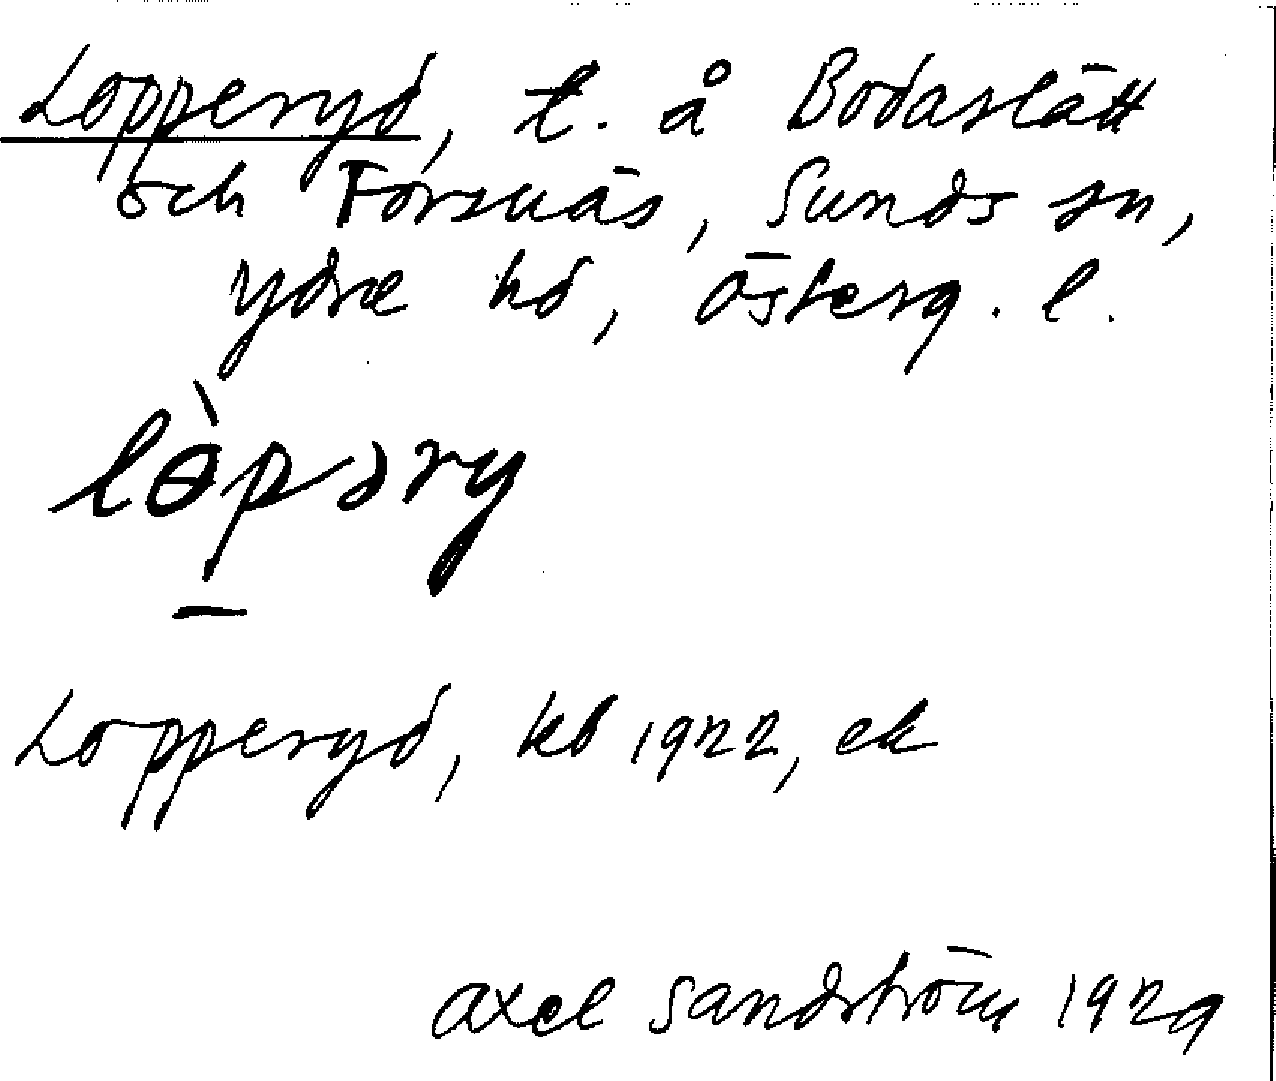 Lopperyd, t. å Bodaslätt
och Forsnäs, Sunds sn,
Ydre hd, Österg. l.
lɵ̀pəry
Lopperyd, kb 1922, ek
Axel Sandström 1929